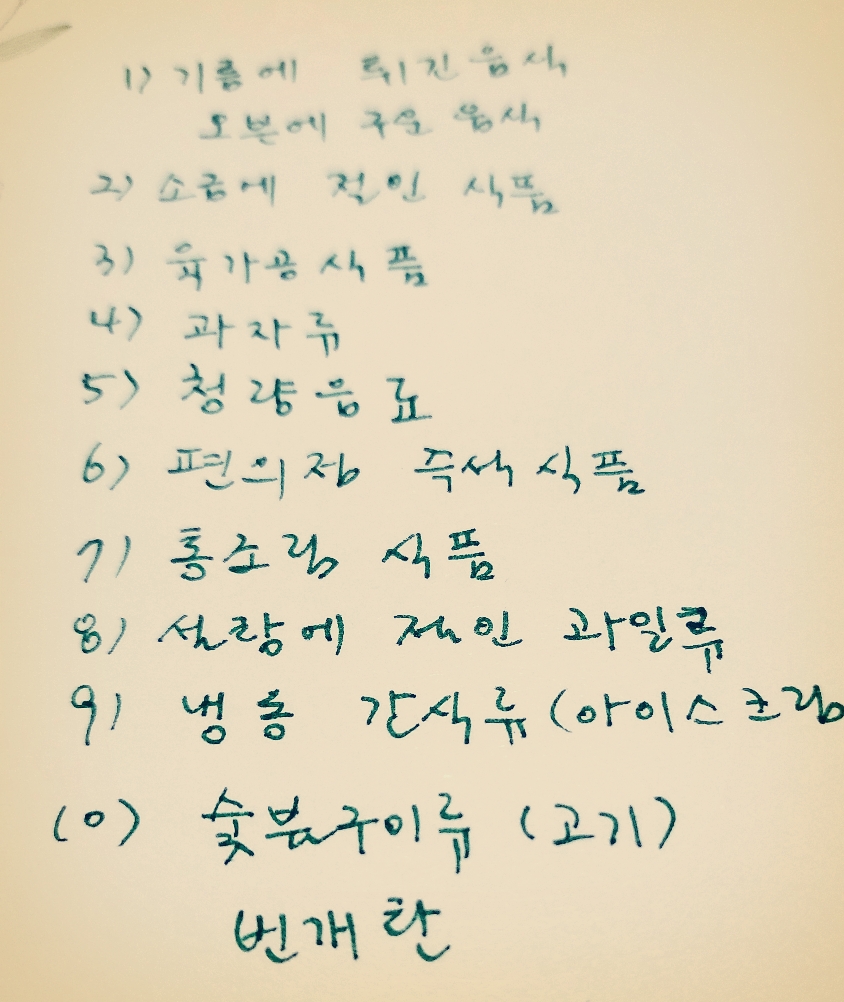 1) 기름에 튀긴음식
오븐에 구운 음식
2) 소금에 절인 식품
3) 육가공식품
4) 과자류
5) 청량음료
6) 편의점 즉석식품
7) 통조림 식품
8) 설탕에 절인 과일류
9) 냉동 간식류(아이스크림
10) 숯불구이류 (고기)
번개탄